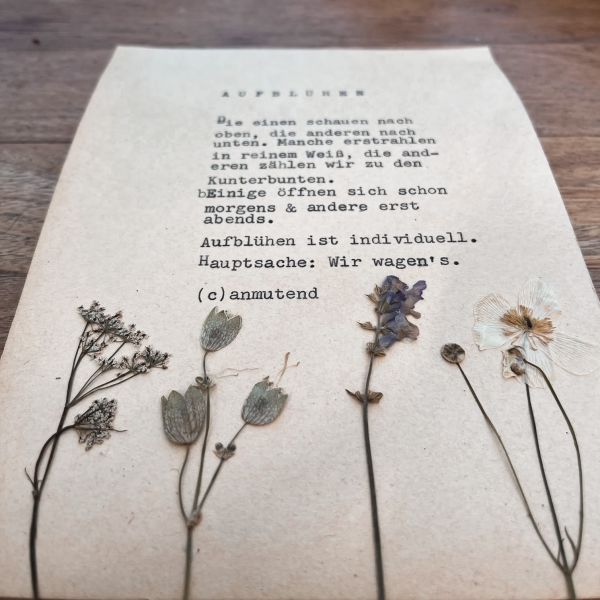 AUFBLÜHEN
Die einen schauen nach
oben, die anderen nach
unten. Manche erstrahlen
in reinem Weiß, die and-
eren zählen wir zu den
Kunterbunten.
bEinige öffnen sich schon
morgens & andere erst
abends.
Aufblühen ist individuell.
Hauptsache: Wir wagen's.
(c)anmutend